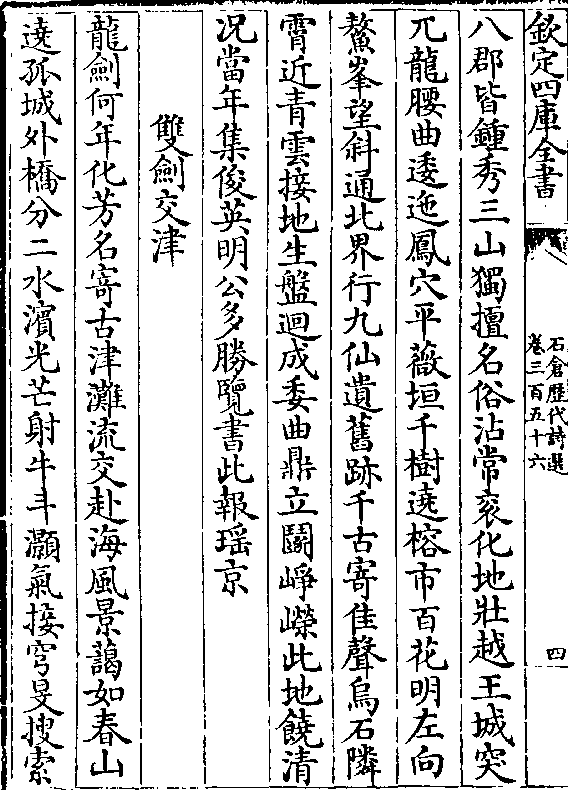 欽定四庫全書
石倉歴代詩選
卷三百五十六
四
八郡皆鍾秀三山獨擅名俗沾常衮化地壯越王城突
兀龍腰曲逶迤鳳穴平薇垣千樹遶榕市百花明左向
鰲峯望斜通北界行九仙遺舊跡千古寄佳聲烏石隣
霄近青雲接地生盤迴成委曲鼎立鬭崢嶸此地饒清
况當年集俊英明公多勝覽書此報瑶京
雙劍交津
龍劍何年化芳名寄古津灘流交赴海風景藹如春山
遶孤城外橋分二水濱光芒射牛斗灝氣接穹旻搜索